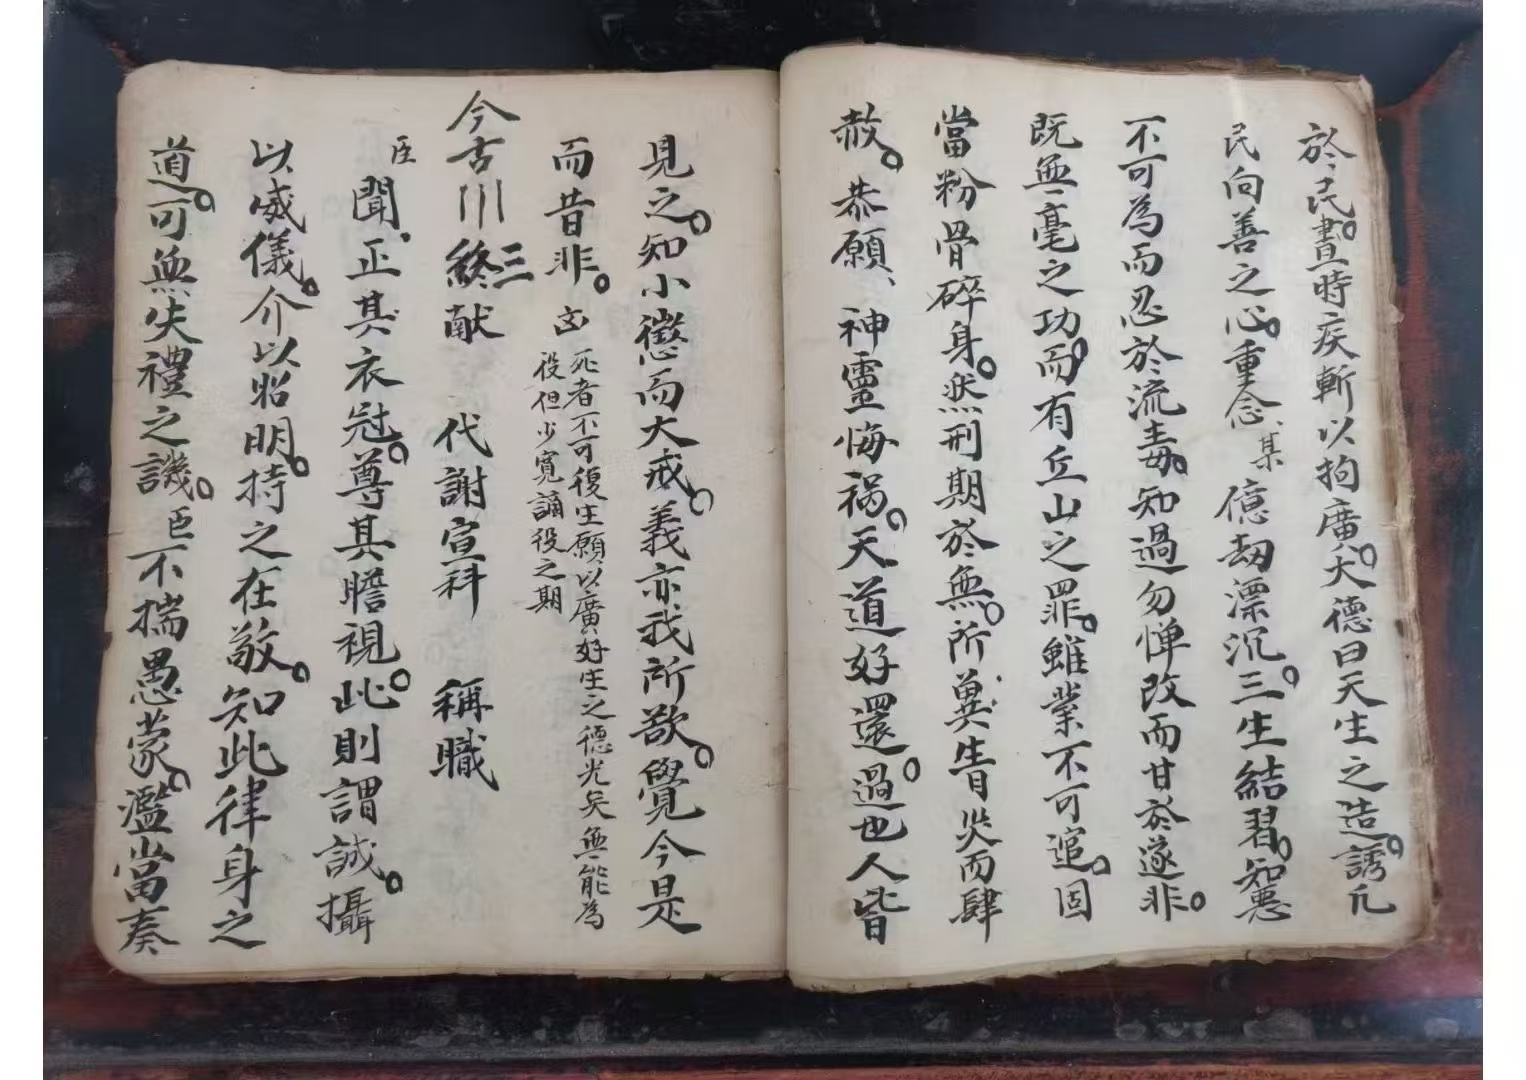 於民。晝時疾斬以拘廣。大德曰天生之造。誘凡
民向善之心。重念、某億劫漂沉。三生結習。知惡
不可為而忍於流毒。知過勿憚改而甘於遂非。
既無一毫之功。而有丘山之罪。雖業不可追。固
當粉骨碎身。然刑期於無。所冀、生眚災而肆
赦。恭願、神靈悔禍。天道好還。過也人皆
見之。知小懲而大戒。義亦我所欲。覺今是
而昔非。
死者不可復生願以廣好生之德光矣無能為
役但少寬誦役之期
今古川三終献 代謝宣科 稱職
臣聞、正其衣冠。尊其瞻視。此則謂誠。攝
以威儀。介以昭明。持之在敬。知此律身之
道。可無失禮之譏。臣不揣愚蒙。濫當奏